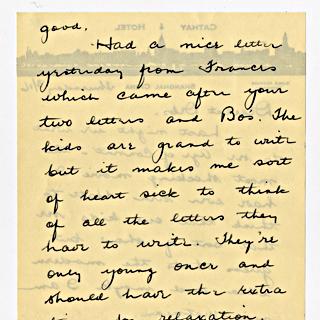 good.
Had a nice letter
yesterday from Frances
which came after your
two letters and Bo's. The
kids are grand to write
but it makes me sort
of heart sick to think
of all the letters they
have to write. They're
only young once and
should have the extra
time for relaxation.
CATHAY HOTEL